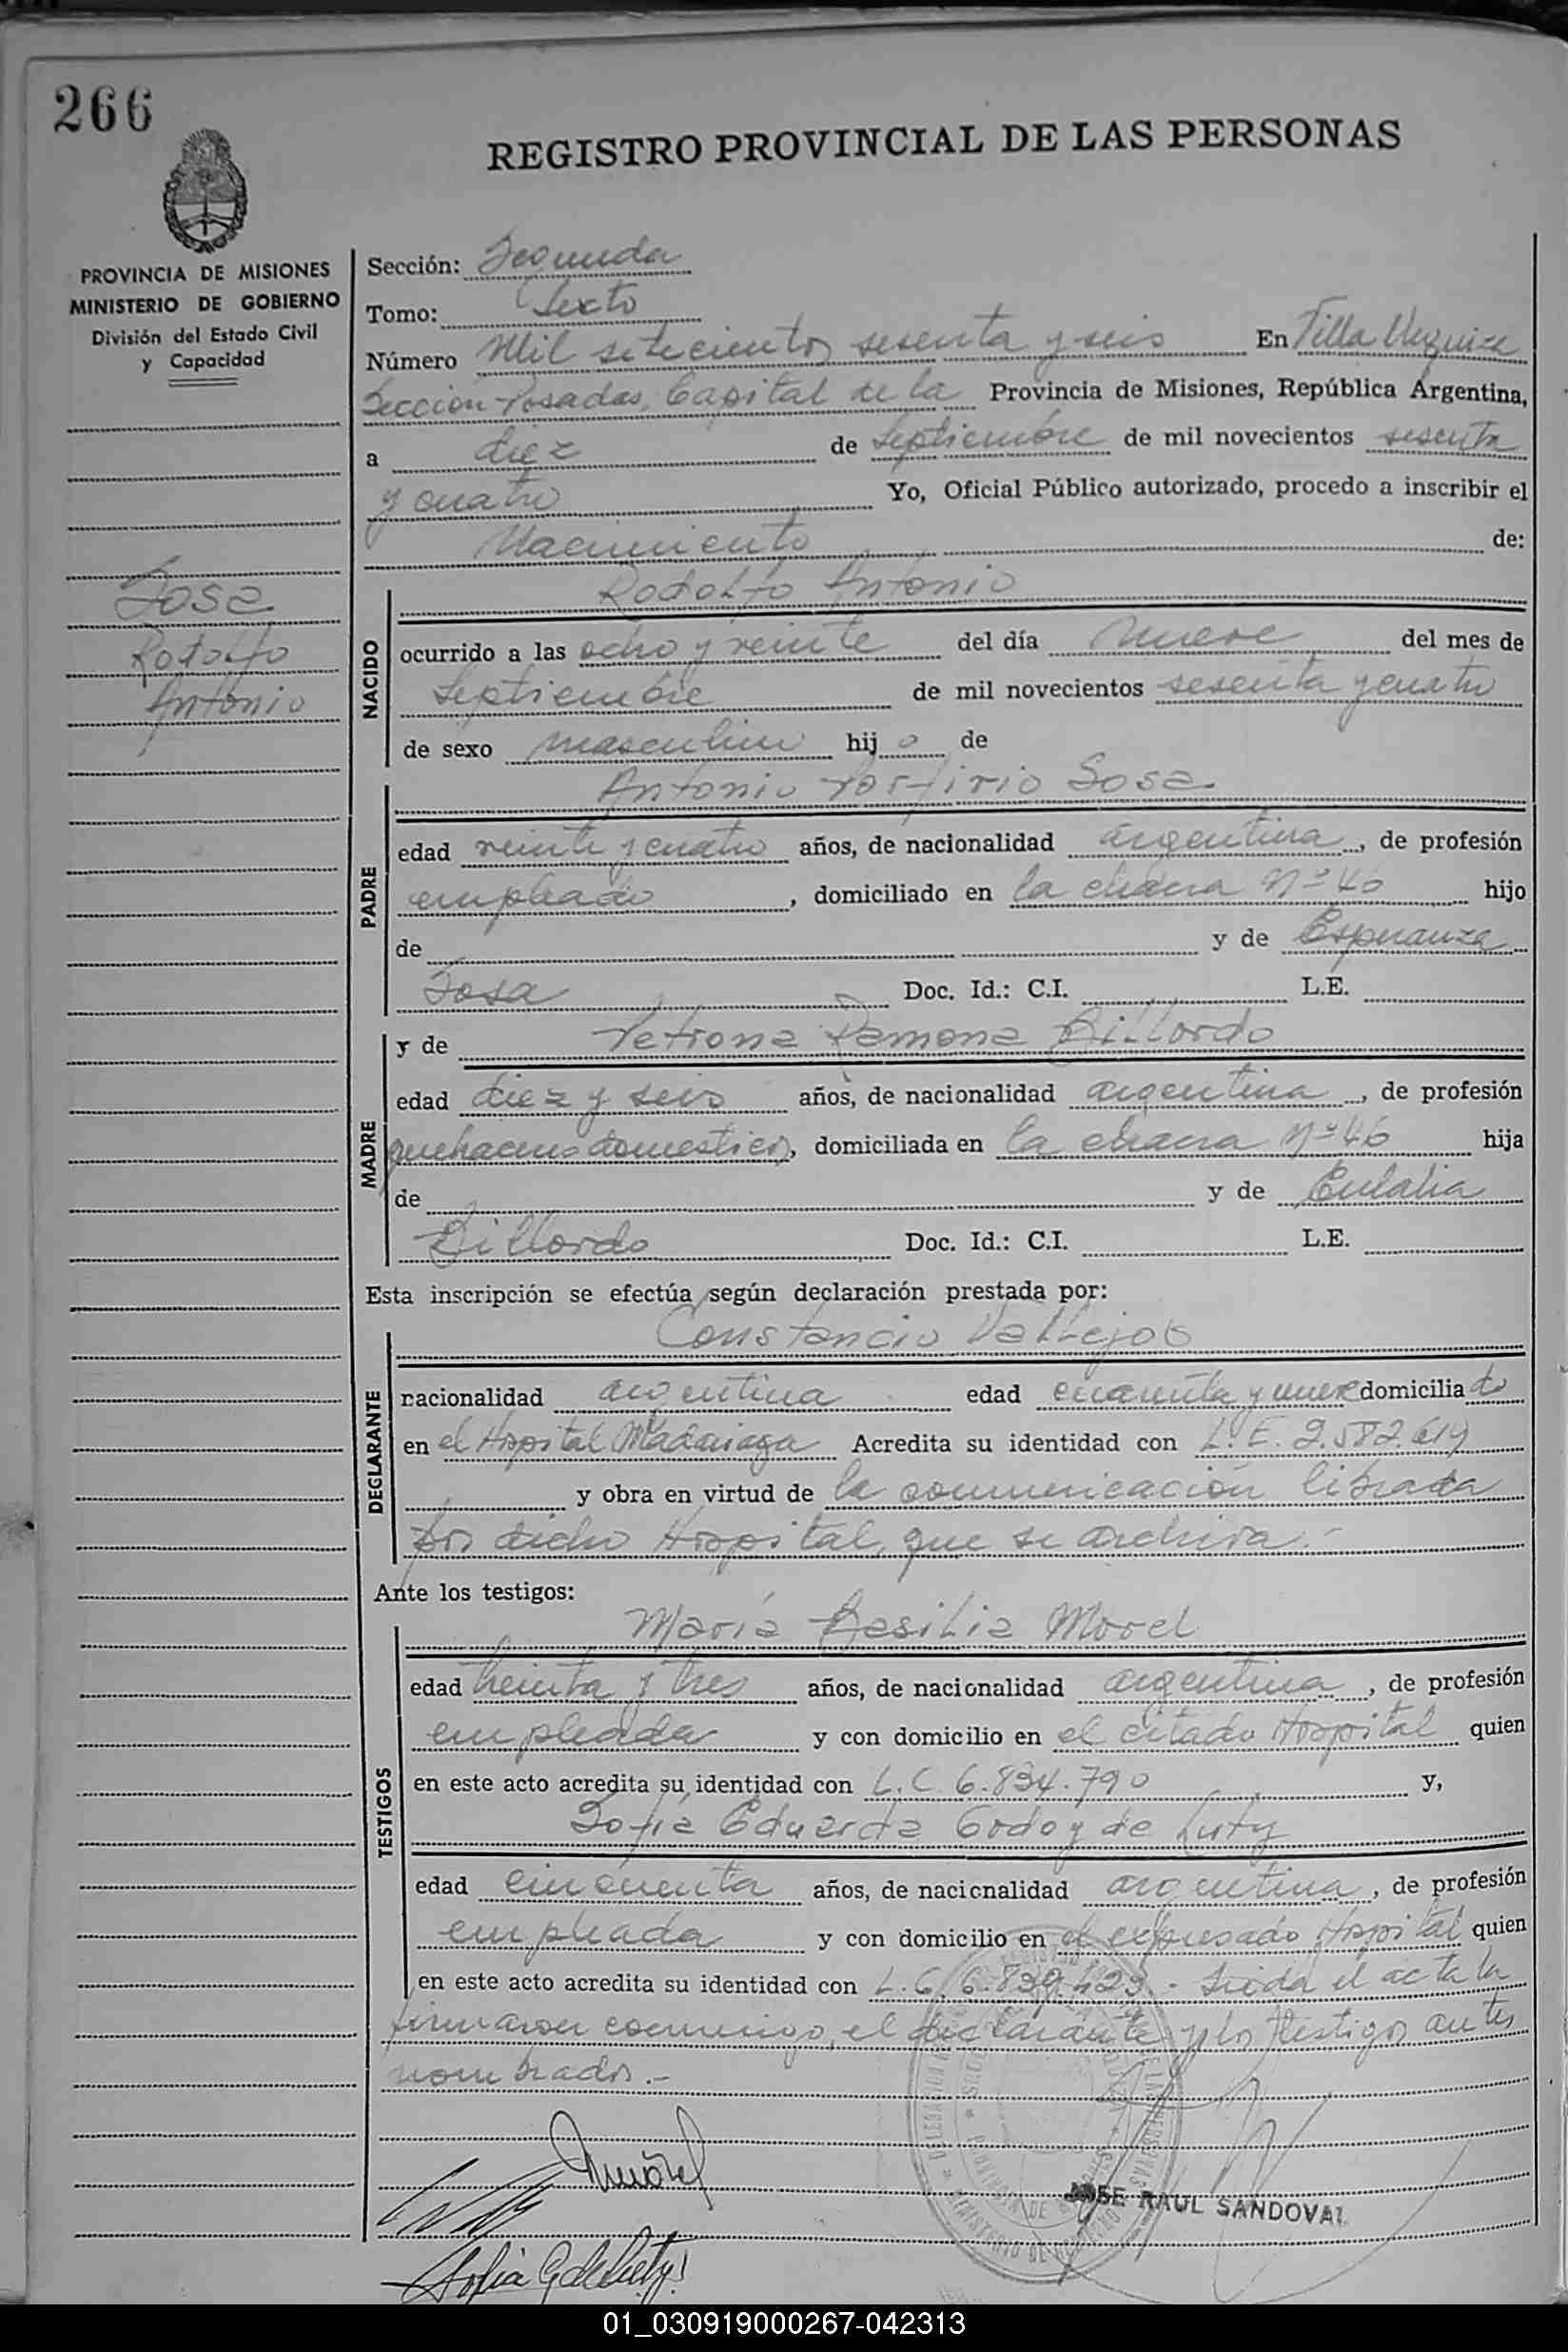 266
REGISTRO PROVINCIAL DE LAS PERSONAS
PROVINCIA DE MISIONES
MINISTERIO DE GOBIERNO
División del Estado Civil
y Capacidad
Sosa
Rodolfo
Antonio
Sección: Segunda
Tomo: Sexto
Número Mil setecientos sesenta y seis En Villa Urquiza
Sección Posadas, Capital de la Provincia de Misiones, República Argentina,
a diez de Septiembre de mil novecientos sesenta
y cuatro Yo, Oficial Público autorizado, procedo a inscribir el
Nacimiento de:
NACIDO
Rodolfo Antonio
ocurrido a las ocho y veinte del día nueve del mes de
Septiembre de mil novecientos sesenta y cuatro
de sexo masculino hijo de
PADRE
Antonio Porfirio Sosa
edad veinte y cuatro años, de nacionalidad argentina, de profesión
empleado, domiciliado en la chacra Nº 46 hijo
de y de Esperanza
Sosa Doc. Id.: C.I. L.E.
MADRE
y de Petrona Ramona Billordo
edad diez y seis años, de nacionalidad argentina, de profesión
quehaceres domesticos, domiciliada en la chacra Nº 46 hija
de y de Eulalia
Billordo Doc. Id.: C.I. L.E.
Esta inscripción se efectúa según declaración prestada por:
DECLARANTE
Constancio Vallejos
nacionalidad argentina edad cuarenta y nueve domiciliado
en el Hospital Madariaga Acredita su identidad con L.E. 2.582.619
y obra en virtud de la comunicación librada
por dicho Hospital, que se archiva.-
Ante los testigos:
TESTIGOS
María Basilia Morel
edad treinta y tres años, de nacionalidad argentina, de profesión
empleada y con domicilio en el citado Hospital quien
en este acto acredita su identidad con L.C. 6.834.790 y,
Sofia Eduarda Godoy de Luty
edad cincuenta años, de nacionalidad argentina, de profesión
empleada y con domicilio en el expresado Hospital quien
en este acto acredita su identidad con L.C. 6.839.423.- Leida el acta la
firmaron conmigo, el declarante y los testigos antes
nombrados.-
Morel
JOSE RAUL SANDOVAL
Sofia G de Luty
01_030919000267-042313